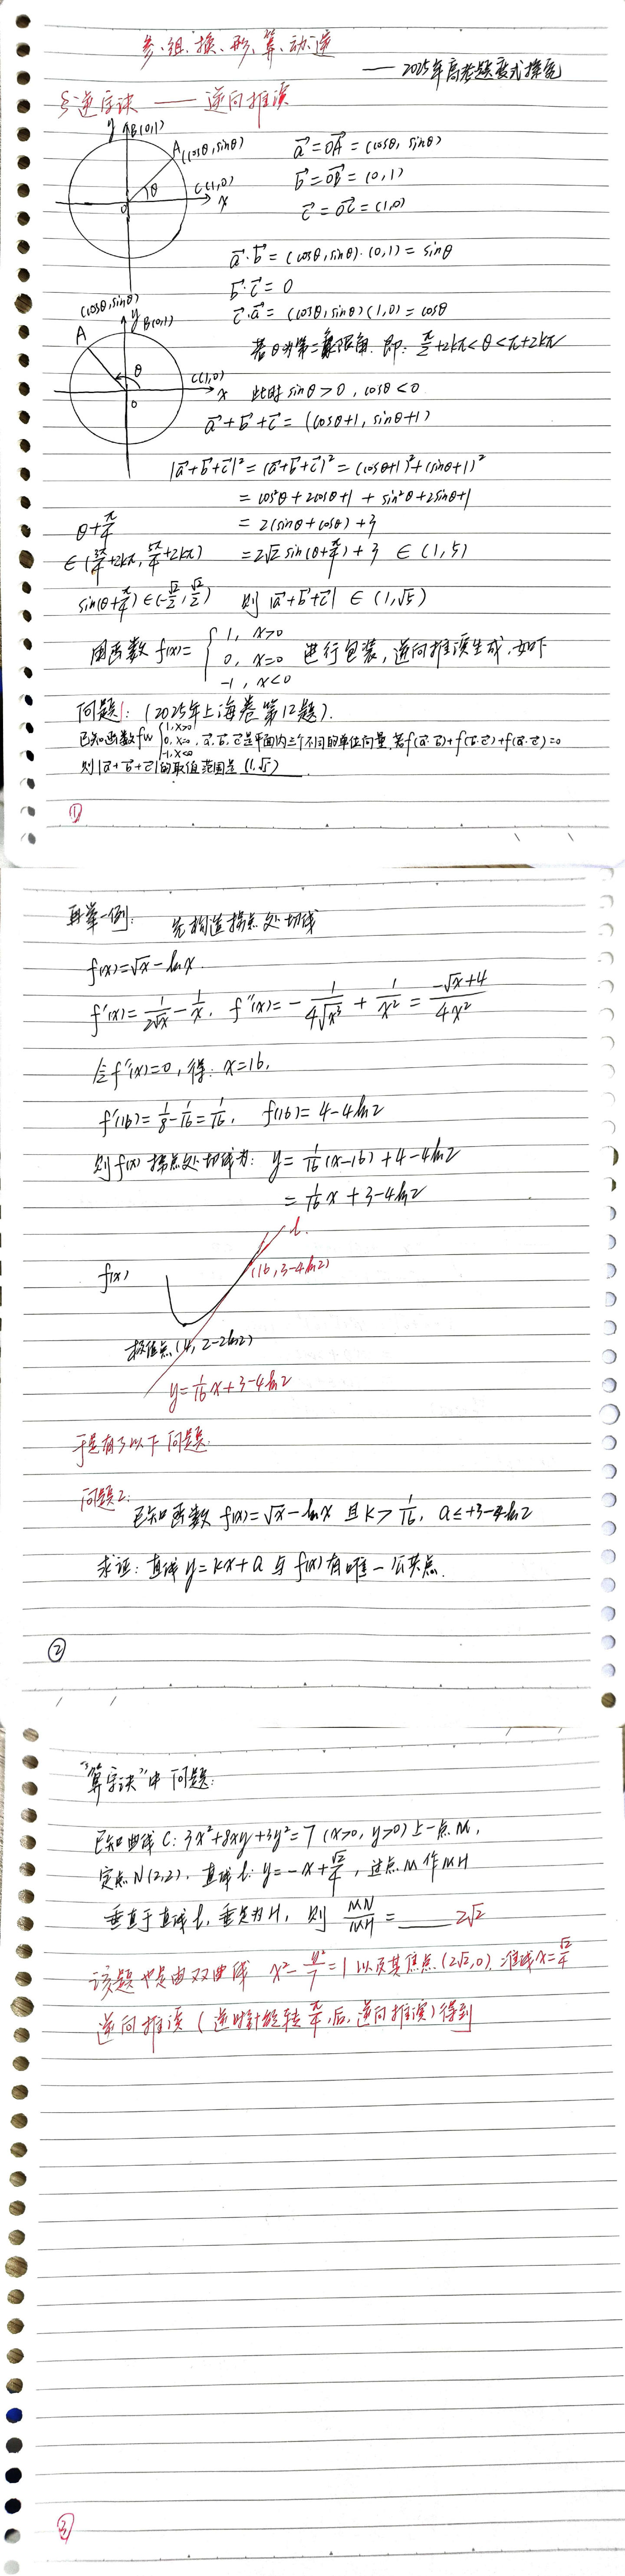 参、组、换、形、算、动、逆
—— 2025年高考题变式探究
§逆字诀 —— 逆向推演
y B(0,1)
A(cosθ,sinθ)
C(1,0)
θ
O x
a⃗=OA⃗=(cosθ, sinθ)
b⃗=OB⃗=(0,1)
c⃗=OC⃗=(1,0)
a⃗·b⃗=(cosθ,sinθ)·(0,1)=sinθ
b⃗·c⃗=0
c⃗·a⃗=(cosθ,sinθ)(1,0)=cosθ
(cosθ,sinθ)
A y B(0,1)
θ C(1,0)
O x
若θ为第二象限角, 即: π/2+2kπ<θ<π+2kπ
此时 sinθ>0, cosθ<0
a⃗+b⃗+c⃗=(cosθ+1, sinθ+1)
|a⃗+b⃗+c⃗|²=(a⃗+b⃗+c⃗)²=(cosθ+1)²+(sinθ+1)²
=cos²θ+2cosθ+1+sin²θ+2sinθ+1
=2(sinθ+cosθ)+3
=2√2sin(θ+π/4)+3 ∈(1,5)
θ+π/4
∈(3π/4+2kπ, 5π/4+2kπ)
sin(θ+π/4)∈(-√2/2, √2/2) 则|a⃗+b⃗+c⃗|∈(1,√5)
用函数f(x)={1, x>0
0, x=0 进行包装, 逆向推演生成, 如下
-1, x<0
问题1: (2025年上海卷第12题).
已知函数f(x){1,x>0 0,x=0 -1,x<0, a⃗,b⃗,c⃗是平面内三个不同的单位向量, 若f(a⃗·b⃗)+f(b⃗·c⃗)+f(a⃗·c⃗)=0
则|a⃗+b⃗+c⃗|的取值范围是(1,√5)
①
再举一例: 先构造拐点处切线
f(x)=√x-lnx.
f'(x)=1/(2√x)-1/x, f''(x)=-1/(4√x³)+1/x²=(-√x+4)/(4x²)
令f''(x)=0, 得: x=16.
f'(16)=1/8-1/16=1/16, f(16)=4-4ln2
则f(x)拐点处切线为: y=1/16(x-16)+4-4ln2
=1/16x+3-4ln2
l.
f(x) (16,3-4ln2)
极值点(4, 2-2ln2)
y=1/16x+3-4ln2
于是有了以下问题.
问题2:
已知函数f(x)=√x-lnx 且k>1/16, a≤+3-4ln2
求证: 直线y=kx+a与f(x)有唯一公共点.
②
"算字诀"中问题:
已知曲线C: 3x²+8xy+3y²=7 (x>0, y>0)上一点M,
定点N(2,2), 直线l: y=-x+√2/4, 过点M作MH
垂直于直线l, 垂足为H, 则 MN/MH=____ 2√2
该题也是由双曲线 x²-y²/7=1以及其焦点(2√2,0), 准线x=√2/4
逆向推演(逆时针旋转π/4后, 逆向推演)得到
③